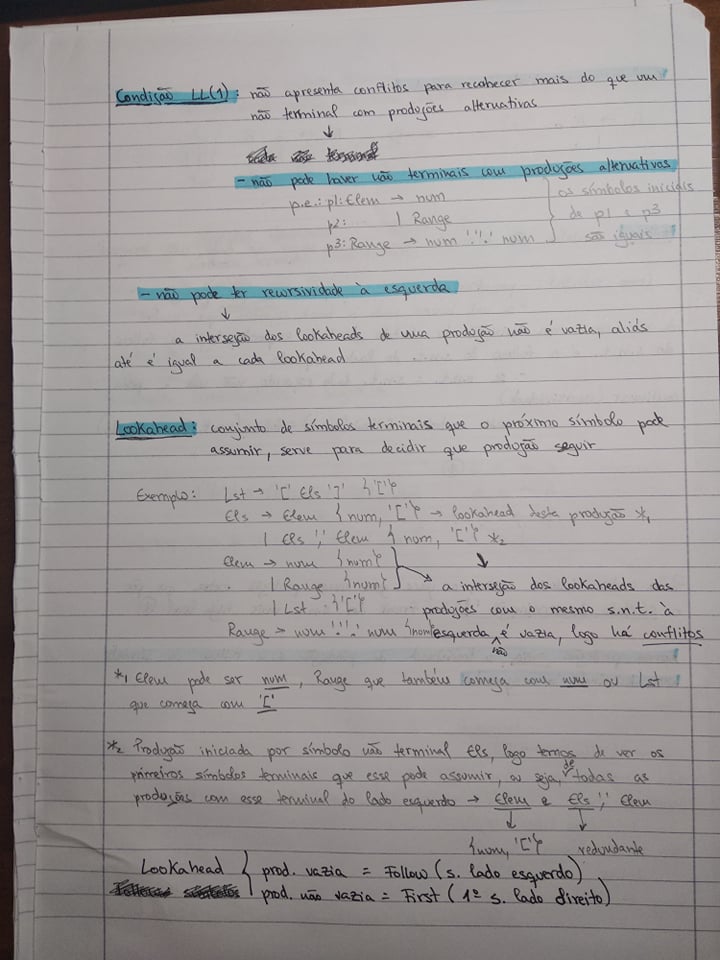 Condição LL(1): não apresenta conflitos para reconhecer mais do que um
não terminal com produções alternativas
↓
- não pode haver não terminais com produções alternativas
p.e.: p1: Elem → num
p2: | Range
p3: Range → num '..' num
os símbolos iniciais
de p1 e p3
são iguais
- não pode ter recursividade à esquerda
↓
a interseção dos lookaheads de uma produção não é vazia, aliás
até é igual a cada lookahead
Lookahead: conjunto de símbolos terminais que o próximo símbolo pode
assumir, serve para decidir que produção seguir
Exemplo: Lst → '[' Els ']' {'['}
Els → Elem {num, '['} → lookahead desta produção *1
| Els ',' Elem {num, '['} *2
Elem → num {num}
| Range {num}
| Lst {'['}
Range → num '..' num {num}
a interseção dos lookaheads das
produções com o mesmo s.n.t. à
esquerda não é vazia, logo há conflitos
*1 Elem pode ser num, Range que também começa com num ou Lst
que começa com '['
*2 Produção iniciada por símbolo não terminal Els, logo temos de ver os
primeiros símbolos terminais que esse pode assumir, ou seja, de todas as
produções com esse terminal do lado esquerdo → Elem e Els ',' Elem
{num, '['} redundante
Lookahead { prod. vazia = Follow (s. lado esquerdo)
prod. não vazia = First (1º s. lado direito)